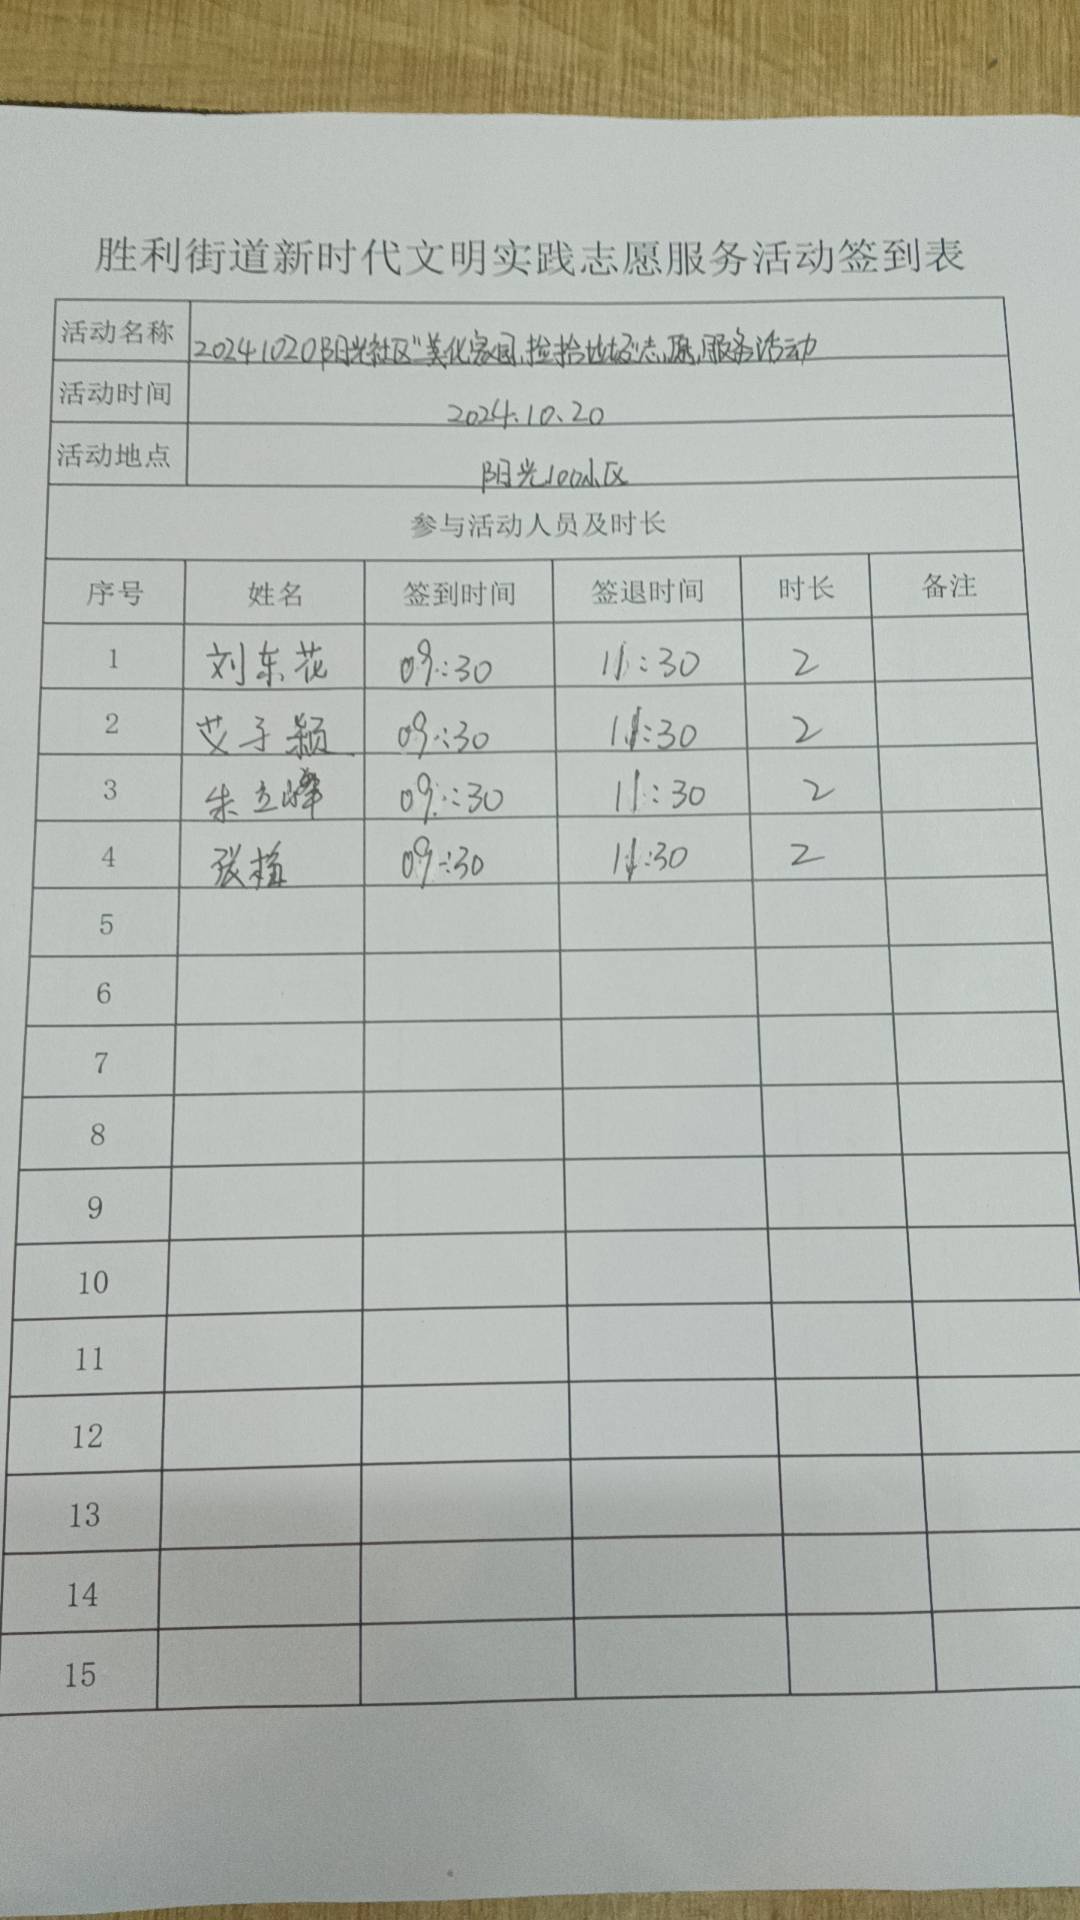 胜利街道新时代文明实践志愿服务活动签到表
活动名称 20241020阳光社区“美化家园,捡拾垃圾”志愿服务活动
活动时间 2024.10.20
活动地点 阳光100小区
参与活动人员及时长
序号 姓名 签到时间 签退时间 时长 备注
1 刘东花 09:30 11:30 2
2 艾子颖 09:30 11:30 2
3 朱立峰 09:30 11:30 2
4 张梅 09:30 11:30 2
5
6
7
8
9
10
11
12
13
14
15